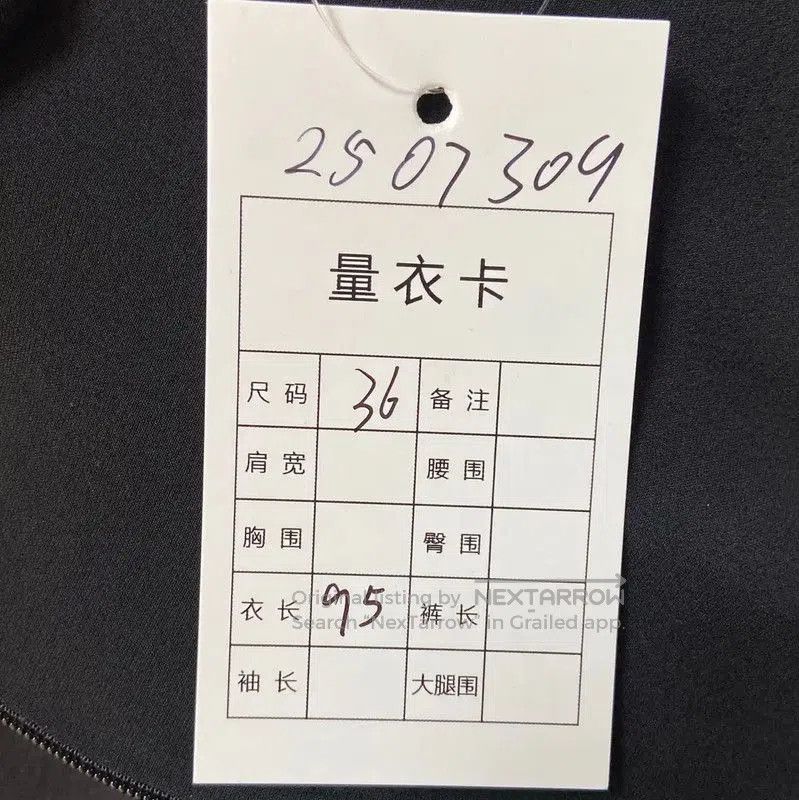 2507309
量衣卡
尺码 36 备注
肩宽 腰围
胸围 臀围
衣长 95 裤长
袖长 大腿围
Original listing by NEXTARROW
Search "NexTarrow" in Grailed app.